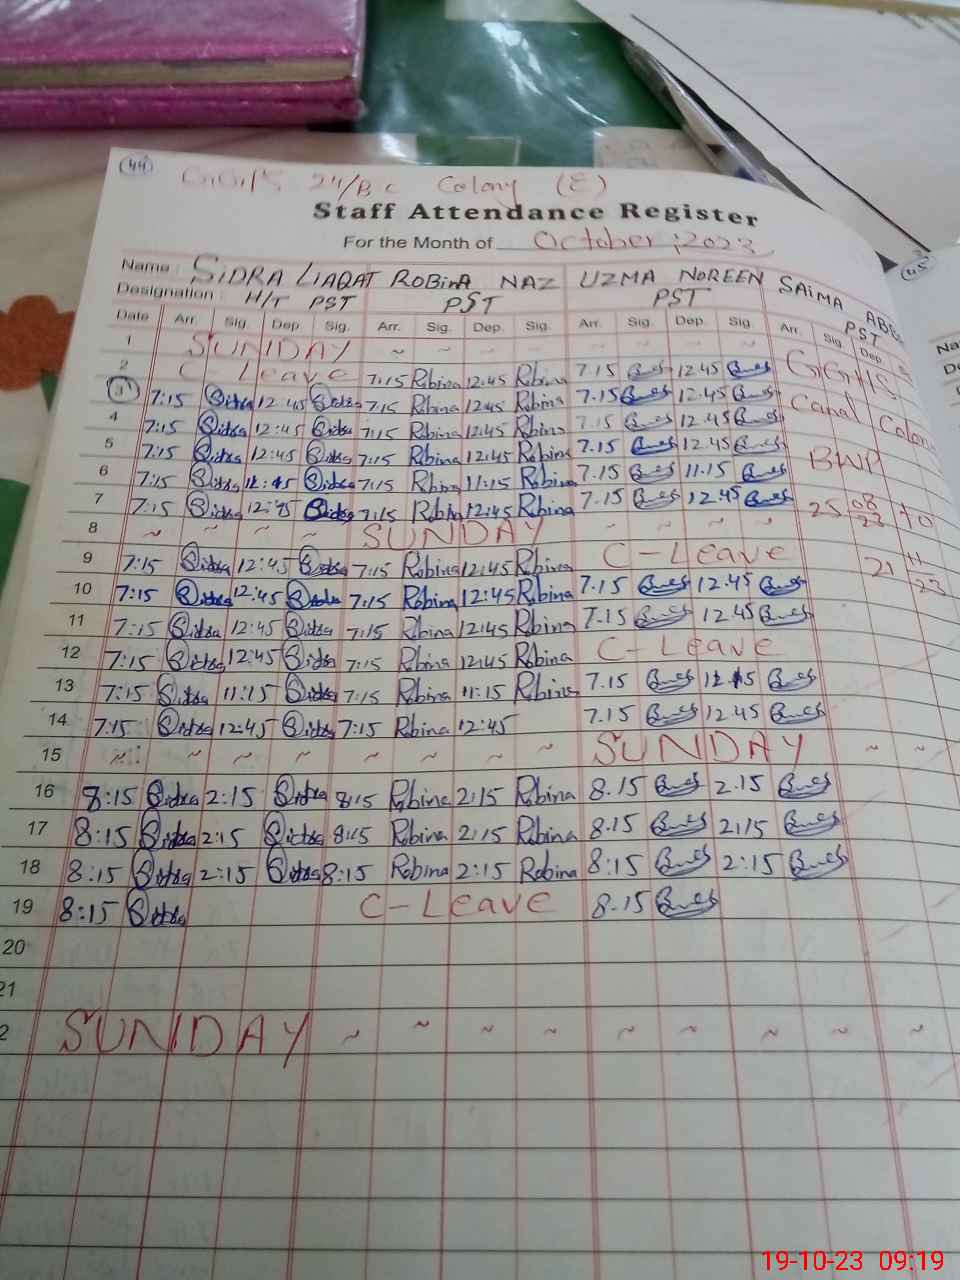 44
24/B.C Colony (E)
Staff Attendance Register
For the Month of October, 2023
45
Name : SIDRA LIAQAT ROBINA NAZ UZMA NOREEN SAIMA
Designation : H/T PST PST PST PST
Date Arr. Sig. Dep. Sig. Arr. Sig. Dep. Sig. Arr. Sig. Dep. Sig. Arr. Sig. Dep.
1 SUNDAY ~ ~ ~ ~ ~ ~ ~ ~
2 C-Leave 7:15 Robina 12:45 Robina 7.15 12.45 GGHS
3 7:15 Sidra 12:45 Sidra 7:15 Robina 12:45 Robina 7.15 12.45 Canal Colony
4 7:15 Sidra 12:45 Sidra 7:15 Robina 12:45 Robina 7.15 12.45
5 7:15 Sidra 12:45 Sidra 7:15 Robina 12:45 Robina 7.15 12.45 BWP
6 7:15 Sidra Sidra 7:15 Robina 11:15 Robina 7.15 11.15
7 7:15 Sidra 12:45 Sidra 7:15 Robina 12:45 Robina 7.15 12.45 25 08 23 to
8 ~ ~ ~ ~ SUNDAY ~ ~ ~ ~
9 7:15 Sidra 12:45 Sidra 7:15 Robina 12:45 Robina C-Leave 21 11 23
10 7:15 Sidra 12:45 Sidra 7:15 Robina 12:45 Robina 7.15 12.45
11 7:15 Sidra 12:45 Sidra 7:15 Robina 12:45 Robina 7.15 12.45
12 7:15 Sidra 12:45 Sidra 7:15 Robina 12:45 Robina C-Leave
13 7:15 Sidra 11:15 Sidra 7:15 Robina 11:15 Robina 7.15
14 7:15 Sidra 12:45 Sidra 7:15 Robina 12:45 7.15 12.45
15 ~ ~ ~ ~ ~ ~ ~ ~ SUNDAY ~ ~
16 8:15 Sidra 2:15 Sidra 8:15 Robina 2:15 Robina 8.15 2.15
17 8:15 Sidra 2:15 Sidra 8:15 Robina 2:15 Robina 8.15 2:15
18 8:15 Sidra 2:15 Sidra 8:15 Robina 2:15 Robina 8:15 2:15
19 8:15 Sidra C-Leave 8.15
20
21
2 SUNDAY ~ ~ ~ ~ ~ ~ ~ ~ ~
19-10-23 09:19